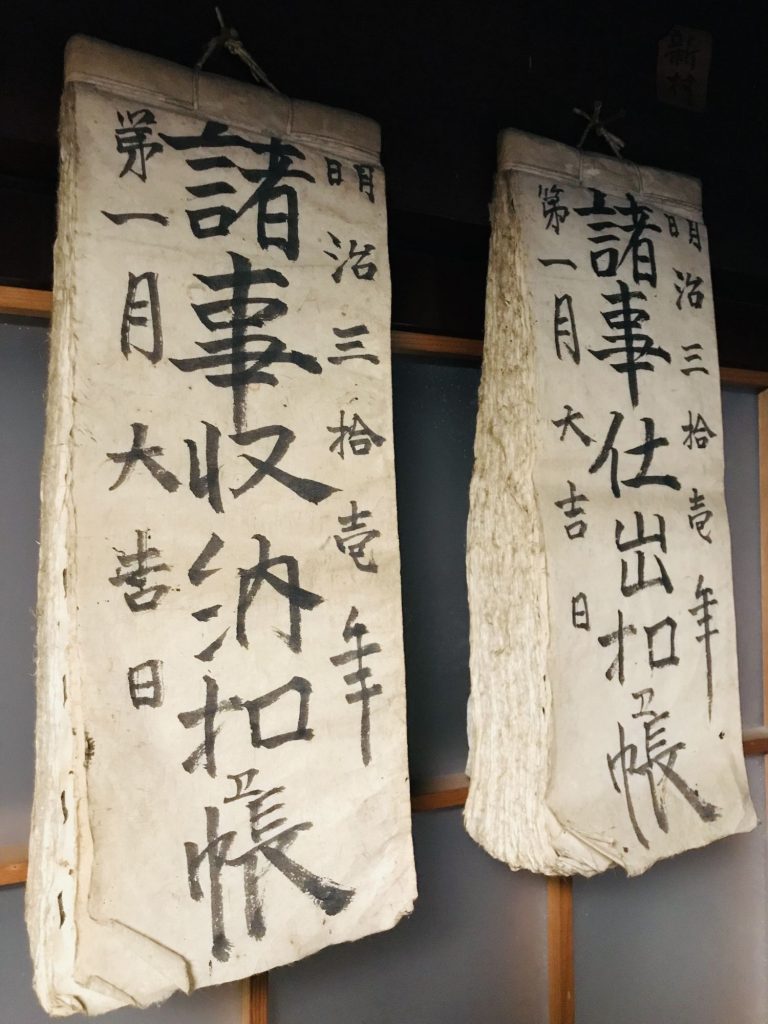 明治三拾壱年
諸事収納扣ヱ帳
第一月大吉日
明治三拾壱年
諸事仕出扣ヱ帳
第一月大吉日